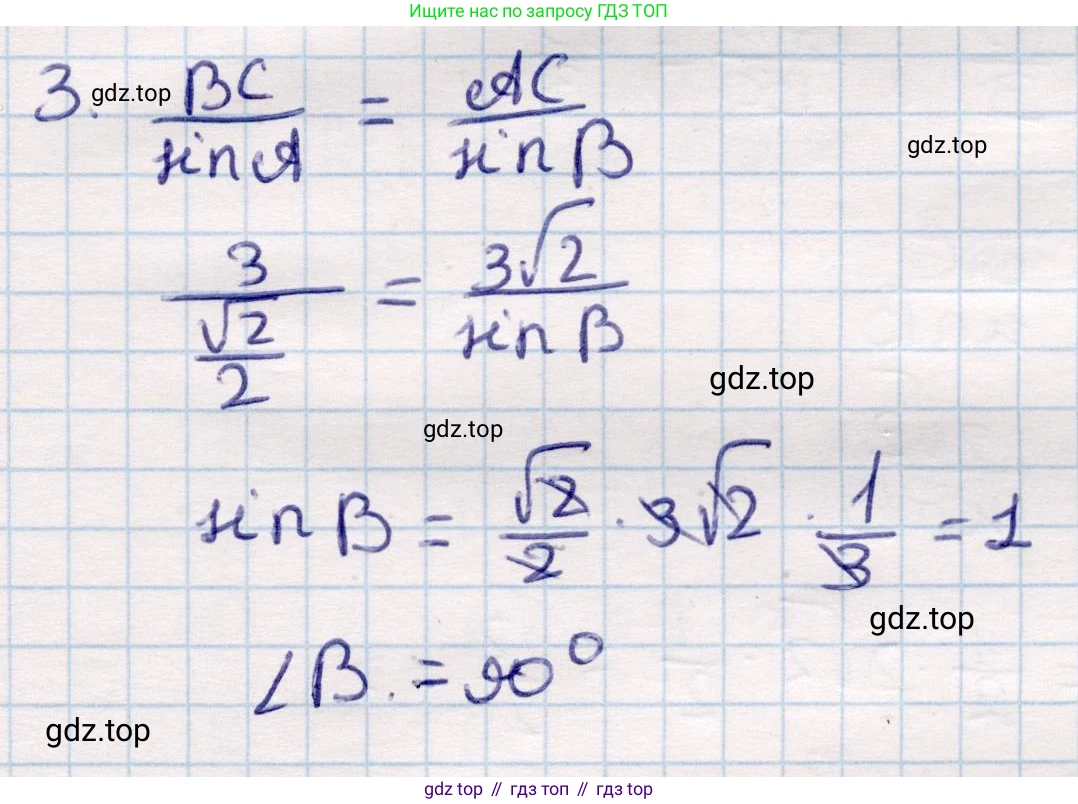 Ищите нас по запросу ГДЗ ТОП
3. BC/sin A = AC/sin B
gdz.top
gdz.top
3/(√2/2) = 3√2/sin B
gdz.top
gdz.top
sin B = √2/2 · 3√2 · 1/3 = 1
gdz.top
∠B = 90°
gdz.top
gdz top // гдз топ // gdz top